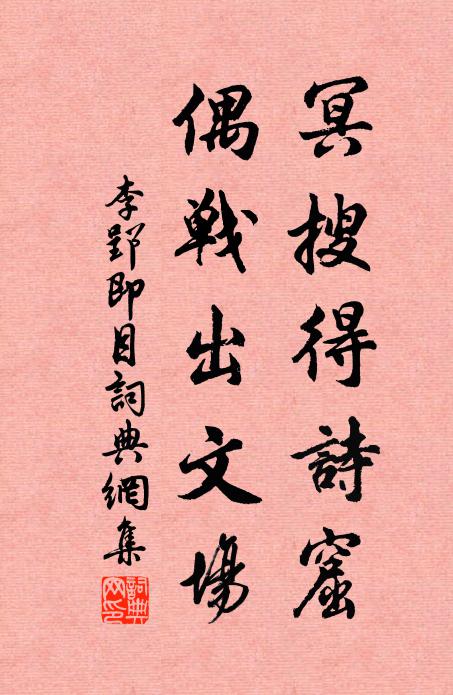 冥搜得詩窟
偶戰出文場
李郢即目詞典網集
詞典网印